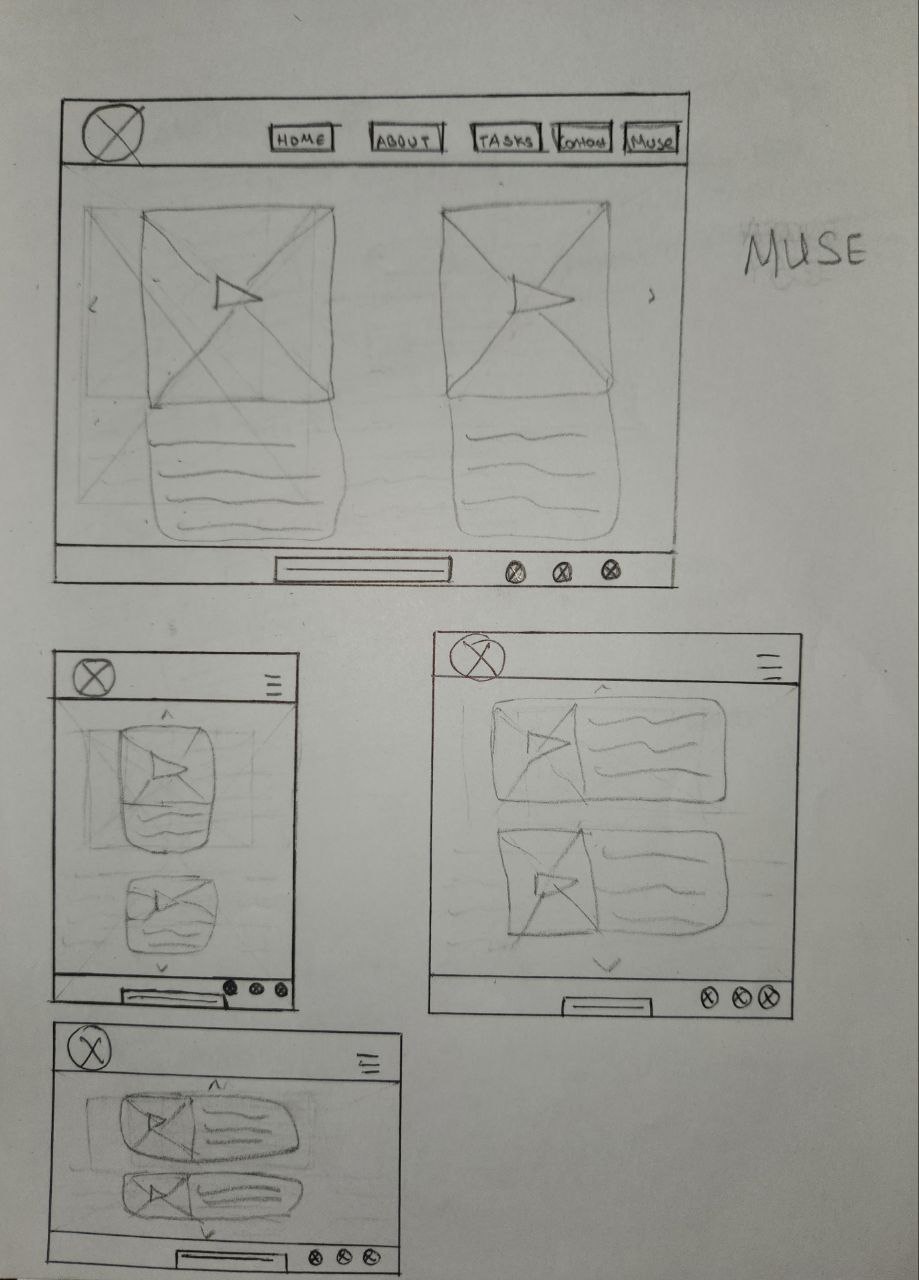 HOME ABOUT TASKS Contact Muse
MUSE